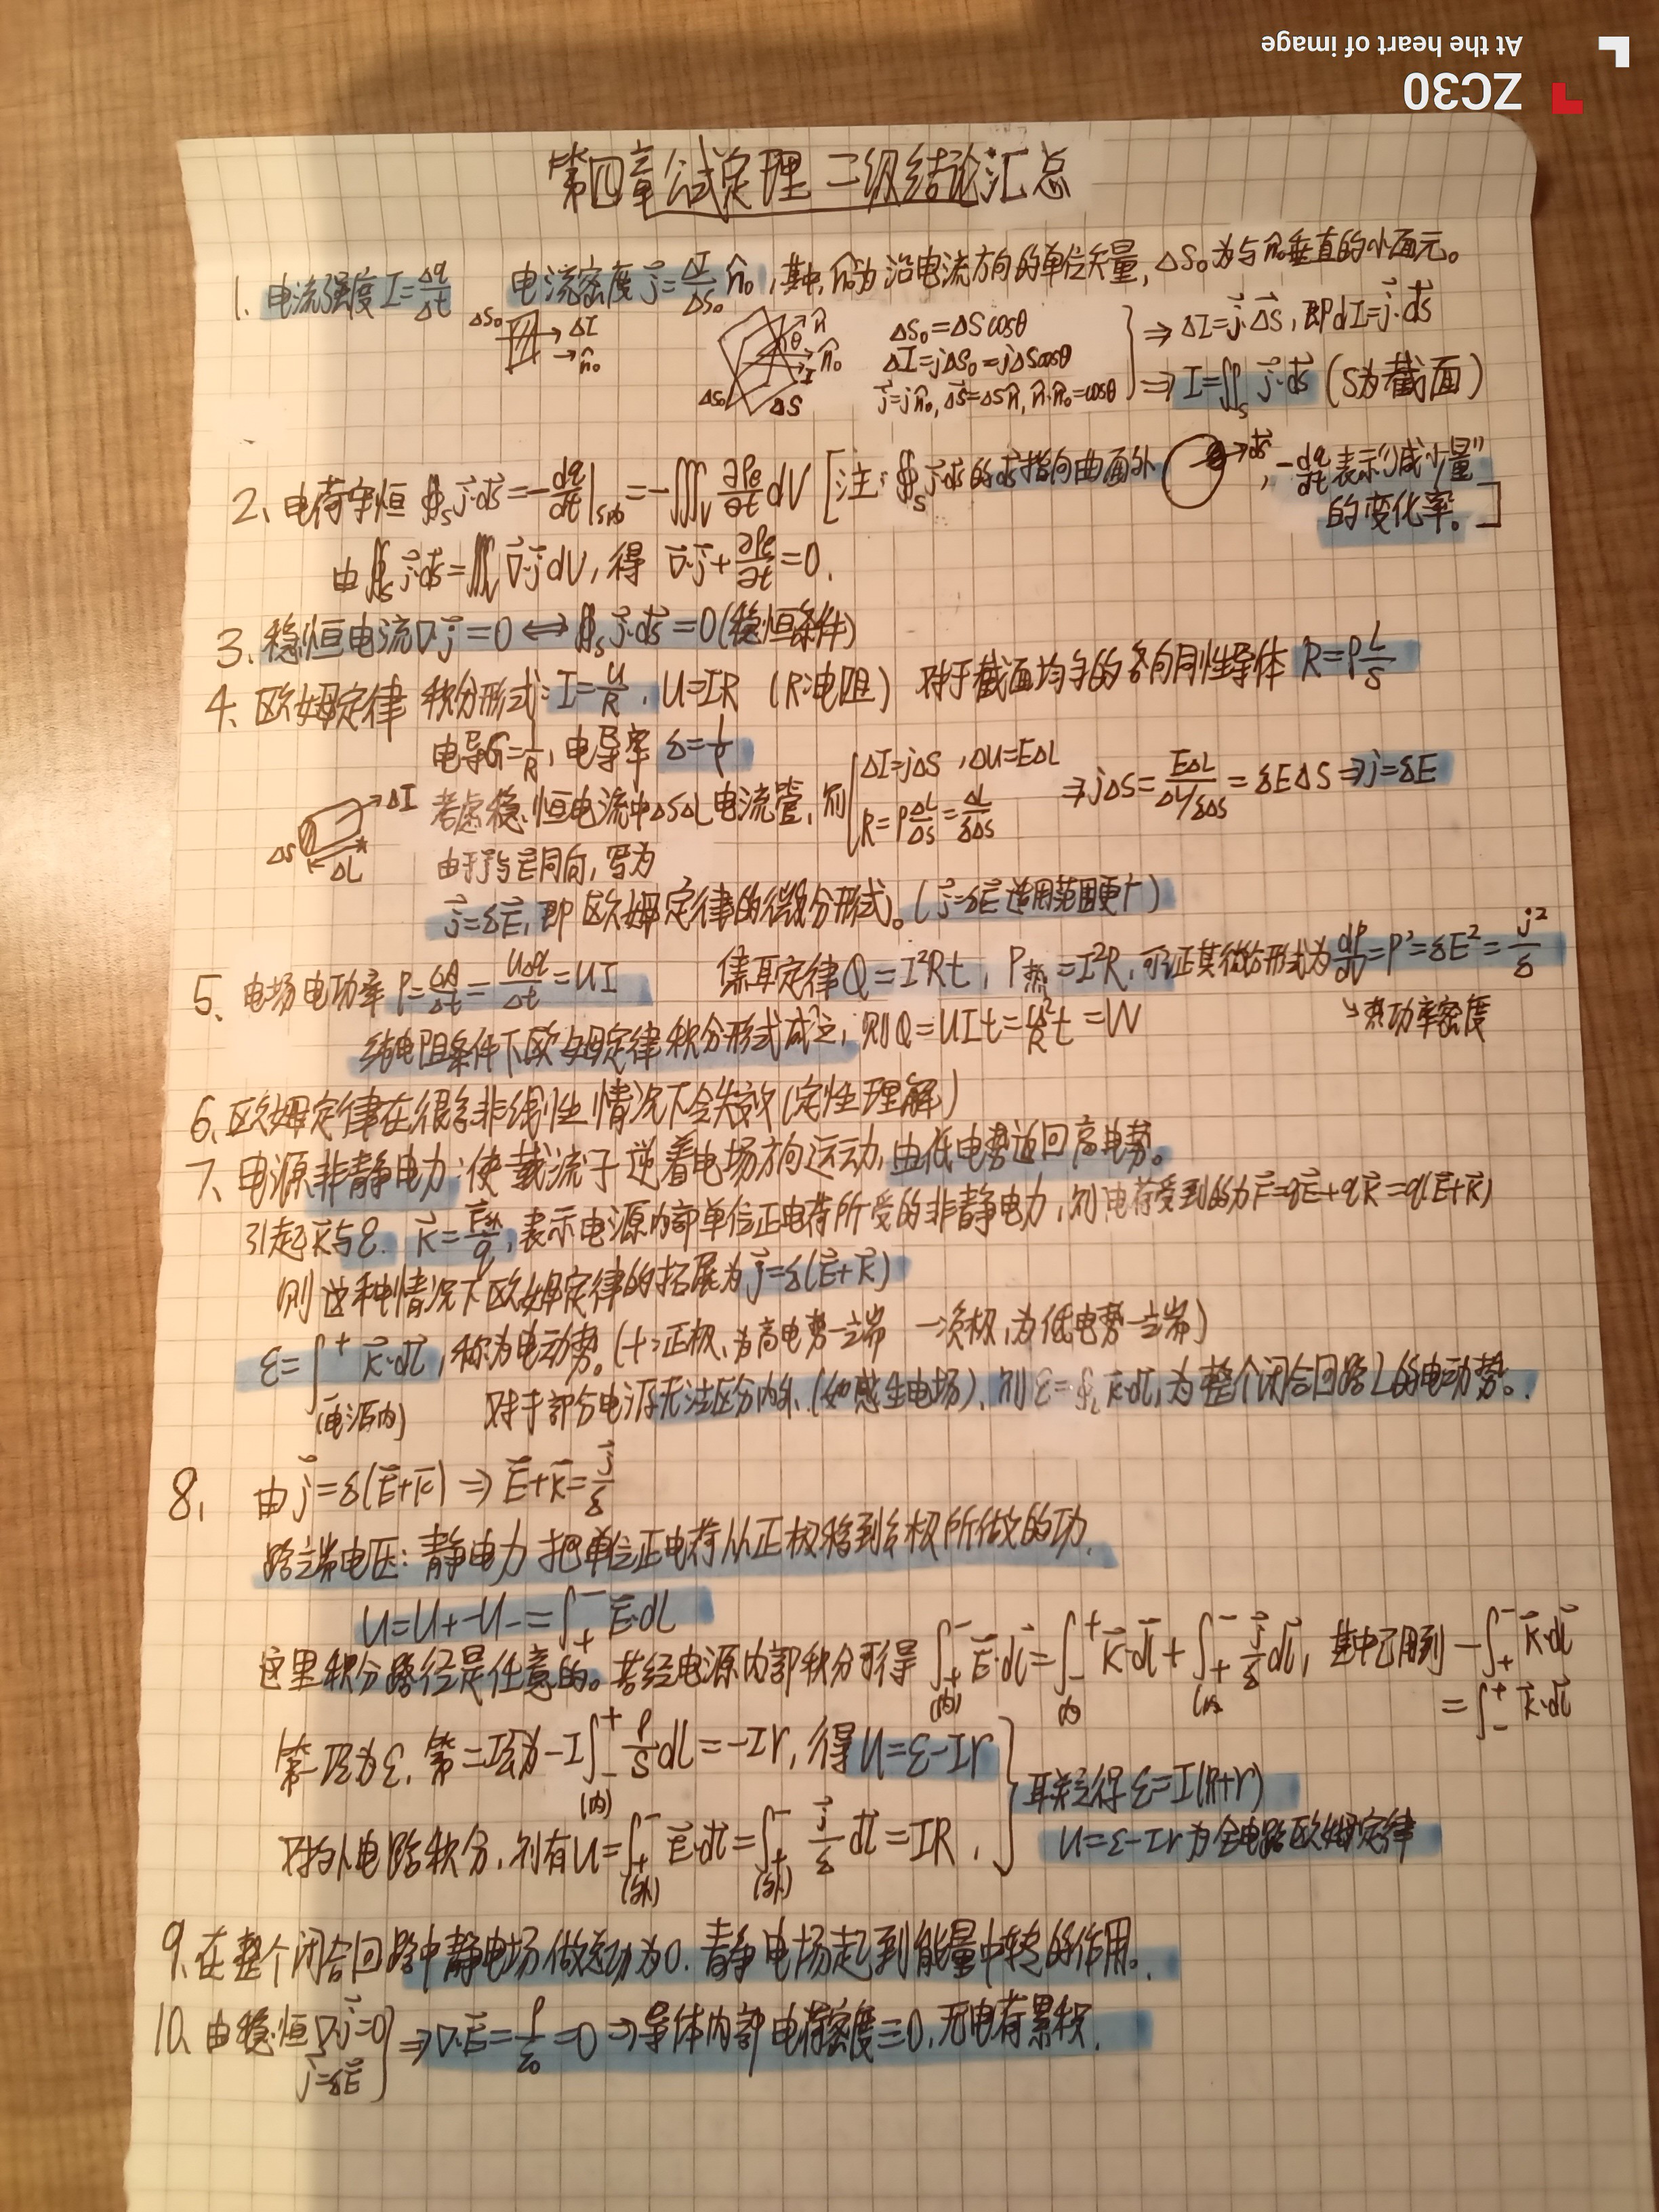 At the heart of image
ZC30
第四章公式定理 二级结论汇总
1. 电流强度 I=Δq/Δt 电流密度 j⃗=ΔI/ΔS₀ n̂₀, 其中, n̂₀为沿电流方向的单位矢量, ΔS₀为与n̂₀垂直的小面元。
ΔS₀ →ΔI →n̂₀
n̂ θ n̂₀ I ΔS₀ ΔS
ΔS₀=ΔScosθ
ΔI=jΔS₀=jΔScosθ
j⃗=jn̂₀, ΔS⃗=ΔSn̂, n̂·n̂₀=cosθ
⇒ ΔI=j⃗·ΔS⃗, 即dI=j⃗·dS⃗
⇒ I=∬ₛ j⃗·dS⃗ (S为截面)
2、电荷守恒 ∯ₛ j⃗·dS⃗=-dq/dt|S内=-∭ᵥ ∂ρe/∂t dV [注: ∯ₛ j⃗·dS⃗的dS⃗指向曲面外 dS⃗, -dq/dt表示“减少量”
的变化率。]
由∯ₛ j⃗·dS⃗=∭ ∇·j⃗ dV, 得 ∇·j⃗+∂ρe/∂t=0.
3、稳恒电流∇·j⃗=0 ⇔ ∯ₛ j⃗·dS⃗=0(稳恒条件)
4、欧姆定律 积分形式: I=U/R, U=IR (R:电阻) 对于截面均匀的各向同性导体 R=ρL/S
电导G=1/R, 电导率 δ=1/ρ
ΔI ΔS ΔL
考虑稳恒电流中ΔSΔL电流管, 则{ΔI=jΔS, ΔU=EΔL
R=ρΔL/ΔS=ΔL/δΔS
⇒jΔS=EΔL/(ΔL/δΔS)=δEΔS⇒j=δE
由于j⃗与E⃗同向, 写为
j⃗=δE⃗, 即欧姆定律的微分形式。(j⃗=δE⃗适用范围更广)
5、电场电功率 P=ΔA/Δt=UΔq/Δt=UI 焦耳定律Q=I²Rt, P热=I²R, 可证其微分形式为dP/dV=P'=δE²=j²/δ
↘热功率密度
纯电阻条件下欧姆定律积分形式成立, 则Q=UIt=U²/R t=W
6、欧姆定律在很多非线性情况下会失效(定性理解)
7、电源非静电力: 使载流子逆着电场方向运动, 由低电势返回高电势。
引起K⃗与ε. K⃗=F⃗非/q, 表示电源内部单位正电荷所受的非静电力, 则电荷受到的力F⃗=qE⃗+qK⃗=q(E⃗+K⃗)
则这种情况下欧姆定律的拓展为j⃗=δ(E⃗+K⃗)
ε=∫₋⁺ K⃗·dl⃗, 称为电动势。(+:正极, 为高电势一端 -:负极, 为低电势一端)
(电源内) 对于部分电源无法区分内外(如感生电场), 则ε=∮L K⃗·dl⃗, 为整个闭合回路L的电动势。
8、由j⃗=δ(E⃗+K⃗) ⇒ E⃗+K⃗=j⃗/δ
路端电压: 静电力把单位正电荷从正极移到负极所做的功.
U=U₊-U₋=∫₊⁻ E⃗·dl
这里积分路径是任意的。若经电源内部积分可得 ∫₊⁻(内) E⃗·dl⃗=∫₋⁺(内) K⃗·dl⃗+∫₊⁻(内) j⃗/δ dl⃗, 其中已用到 -∫₊⁻ K⃗·dl⃗
=∫₋⁺ K⃗·dl⃗
第一项为ε, 第二项为-I∫₋⁺(内) ρ/S dl=-Ir, 得U=ε-Ir
对外电路积分, 则有U=∫₊⁻(外) E⃗·dl⃗=∫₊⁻(外) j⃗/δ dl⃗=IR,
联立得 ε=I(R+r)
U=ε-Ir为全电路欧姆定律
9、在整个闭合回路中静电场做总功为0. 静电场起到能量中转的作用。
10、由稳恒∇·j⃗=0
j⃗=δE⃗
⇒∇·E⃗=ρ/ε₀=0⇒导体内部电荷密度≡0, 无电荷累积.